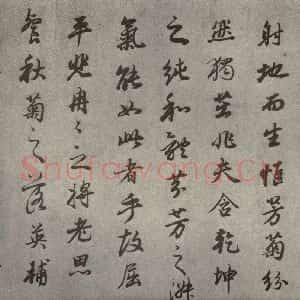 射地而生惟芳菊紛
然獨榮非夫含乾坤
之純和體芬芳之淑
氣能如此者乎故屈
平悲冉々之將老思
餐秋菊之落英輔
Shufawang.Cn